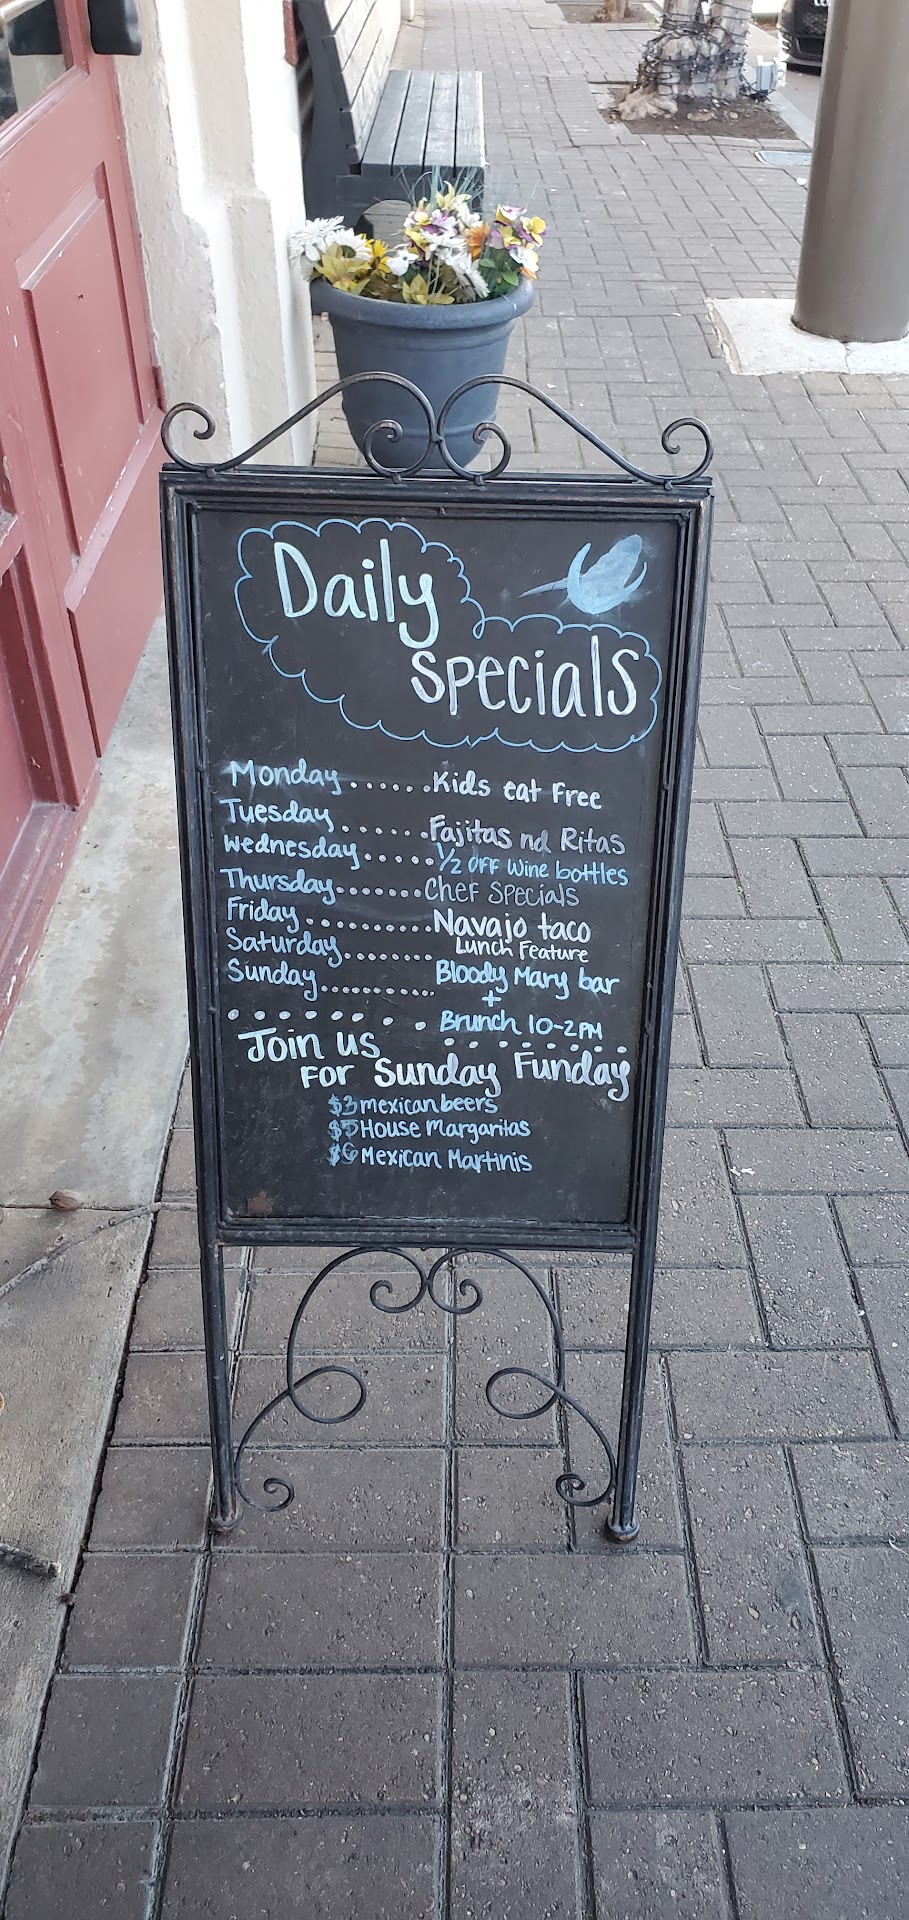 Daily
Specials
Monday......Kids eat Free
Tuesday......Fajitas nd Ritas
Wednesday.....1/2 OFF Wine bottles
Thursday.......Chef Specials
Friday.........Navajo taco
Lunch Feature
Saturday.......
Sunday..........Bloody Mary bar
+
Brunch 10-2PM
Join us
For Sunday Funday
$3 mexican beers
$5 House Margaritas
$6 Mexican Martinis